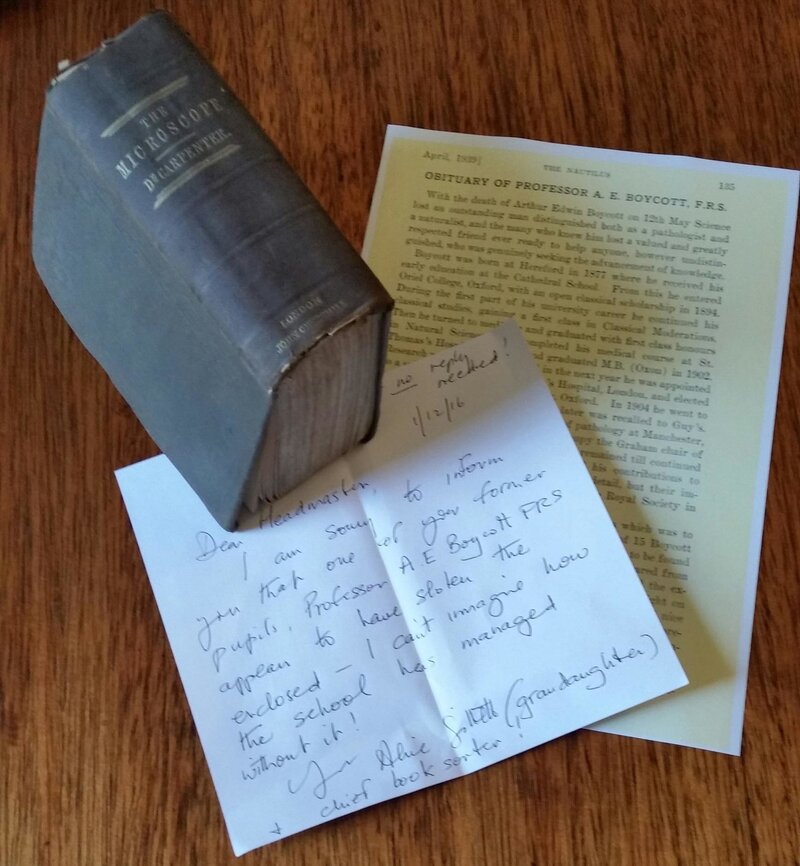 THE
MICROSCOPE
DR CARPENTER.
LONDON
JOHN
April, 1939]
THE NAUTILUS
135
OBITUARY OF PROFESSOR A. E. BOYCOTT, F.R.S.
With the death of Arthur Edwin Boycott on 12th May Science
lost an outstanding man distinguished both as a pathologist and
a naturalist, and the many who knew him lost a valued and greatly
respected friend ever ready to help anyone, however undistin-
guished, who was genuinely seeking the advancement of knowledge.
Boycott was born at Hereford in 1877 where he received his
early education at the Cathedral School. From this he entered
Oriel College, Oxford, with an open classical scholarship in 1894.
During the first part of his university career he continued his
classical studies, gaining a first class in Classical Moderations.
Then he turned to and graduated with first class honours
in Natural Scien completed his medical course at St.
Thomas's Ho and graduated M.B. (Oxon) in 1902.
Research in the next year he was appointed
's Hospital, London, and elected
Oxford. In 1904 he went to
later was recalled to Guy's.
of pathology at Manchester,
py the Graham chair of
remained till continued
his contributions to
detail, but their im-
Royal Society in
which was to
of 15 Boycott
to be found
ared from
ght on
the ex-
nice
no reply
needed!
1/12/16
Dear Headmaster,
I am sorry to inform
you that one of your former
pupils, Professor A.E Boycott FRS
appears to have stolen the
enclosed – I can't imagine how
the school has managed
without it!
Alice (grandaughter)
+ chief book sorter!